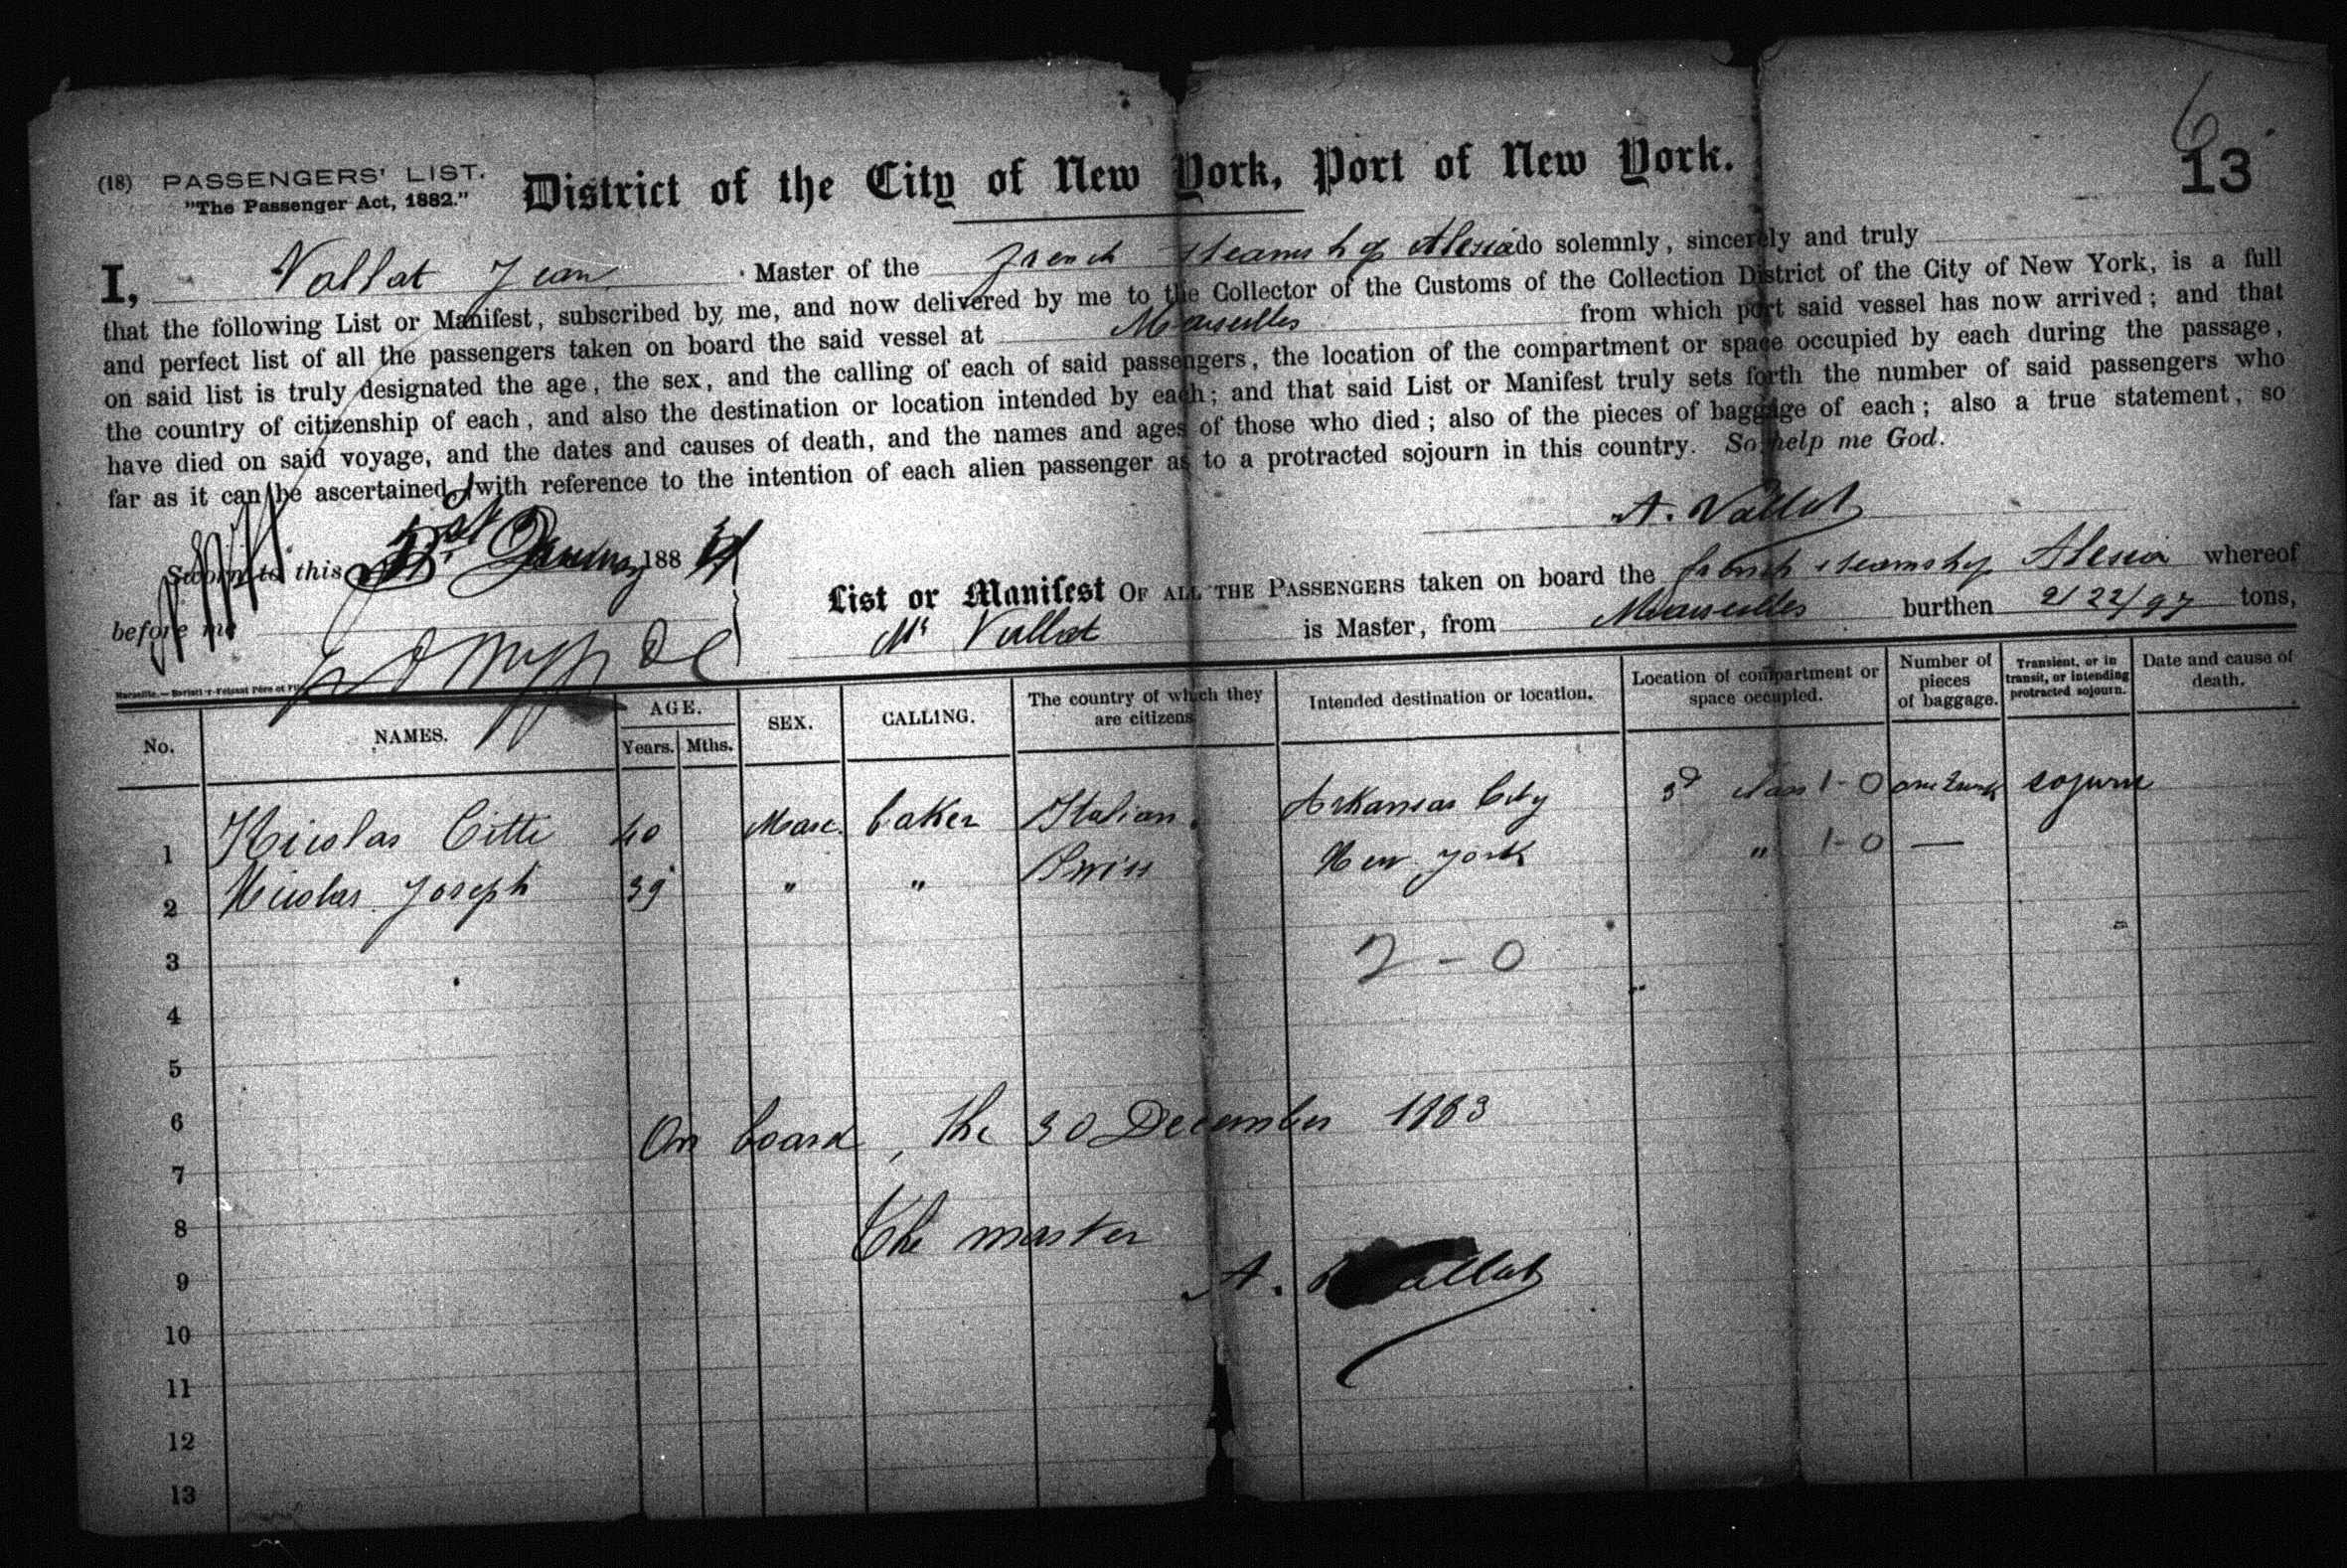 6
13
(18) PASSENGERS' LIST.
"The Passenger Act, 1882."
District of the City of New York, Port of New York.
I, Vallat Jean Master of the french steamship Alesia do solemnly, sincerely and truly
that the following List or Manifest, subscribed by me, and now delivered by me to the Collector of the Customs of the Collection District of the City of New York, is a full
and perfect list of all the passengers taken on board the said vessel at Marseilles from which port said vessel has now arrived; and that
on said list is truly designated the age, the sex, and the calling of each of said passengers, the location of the compartment or space occupied by each during the passage,
the country of citizenship of each, and also the destination or location intended by each; and that said List or Manifest truly sets forth the number of said passengers who
have died on said voyage, and the dates and causes of death, and the names and ages of those who died; also of the pieces of baggage of each; also a true statement, so
far as it can be ascertained, with reference to the intention of each alien passenger as to a protracted sojourn in this country. So help me God.
A. Vallat
Sworn to this January 188
before me
List or Manifest OF ALL THE PASSENGERS taken on board the french steamship Alesia whereof
Mr Vallat is Master, from Marseilles burthen 2122/97 tons,
No. NAMES. AGE. Years. Mths. SEX. CALLING. The country of which they are citizens Intended destination or location. Location of compartment or space occupied. Number of pieces of baggage. Transient, or in transit, or intending protracted sojourn. Date and cause of death.
1 Nicolas Citti 40 Masc. baker Italian. Arkansas City 3d class 1-0 one trunk sojurn
2 Nicolas Joseph 39 " " Swiss New york " 1-0 —
3
2-0
4
5
6
On board, the 30 December 1883
7
8
The master
9
A. Vallat
10
11
12
13